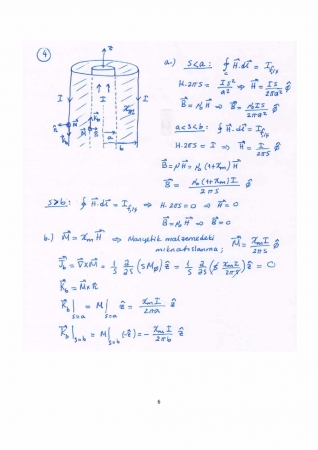 4
z
a.) s<a : ∮ H⃗.dl⃗ = I_f,iç
H.2πs = I s²/a² ⇒ H⃗ = Is/2πa² φ̂
B⃗ = μ₀H⃗ ⇒ B⃗ = μ₀Is/2πa² φ̂
I I I
χm
a<s<b : ∮ H⃗.dl⃗ = I_f,iç
H.2πs = I ⇒ H⃗ = I/2πs φ̂
a
b
B⃗ = μH⃗ = μ₀(1+χm)H⃗
B⃗ = μ₀(1+χm)I/2πs φ̂
s>b : ∮ H⃗.dl⃗ = I_f,iç ⇒ H.2πs = 0 ⇒ H⃗ = 0
B⃗ = μ₀H⃗ ⇒ B⃗ = 0
b.) M⃗ = χm H⃗ ⇒ Manyetik malzemedeki mıknatıslanma; M⃗ = χm I/2πs φ̂
J⃗b = ∇⃗×M⃗ = 1/s ∂/∂s (s Mφ) ẑ = 1/s ∂/∂s (s χm I/2πs) ẑ = 0
K⃗b = M⃗×n̂
K⃗b|s=a = M|s=a ẑ = χm I/2πa ẑ
K⃗b|s=b = M|s=b (-ẑ) = - χm I/2πb ẑ